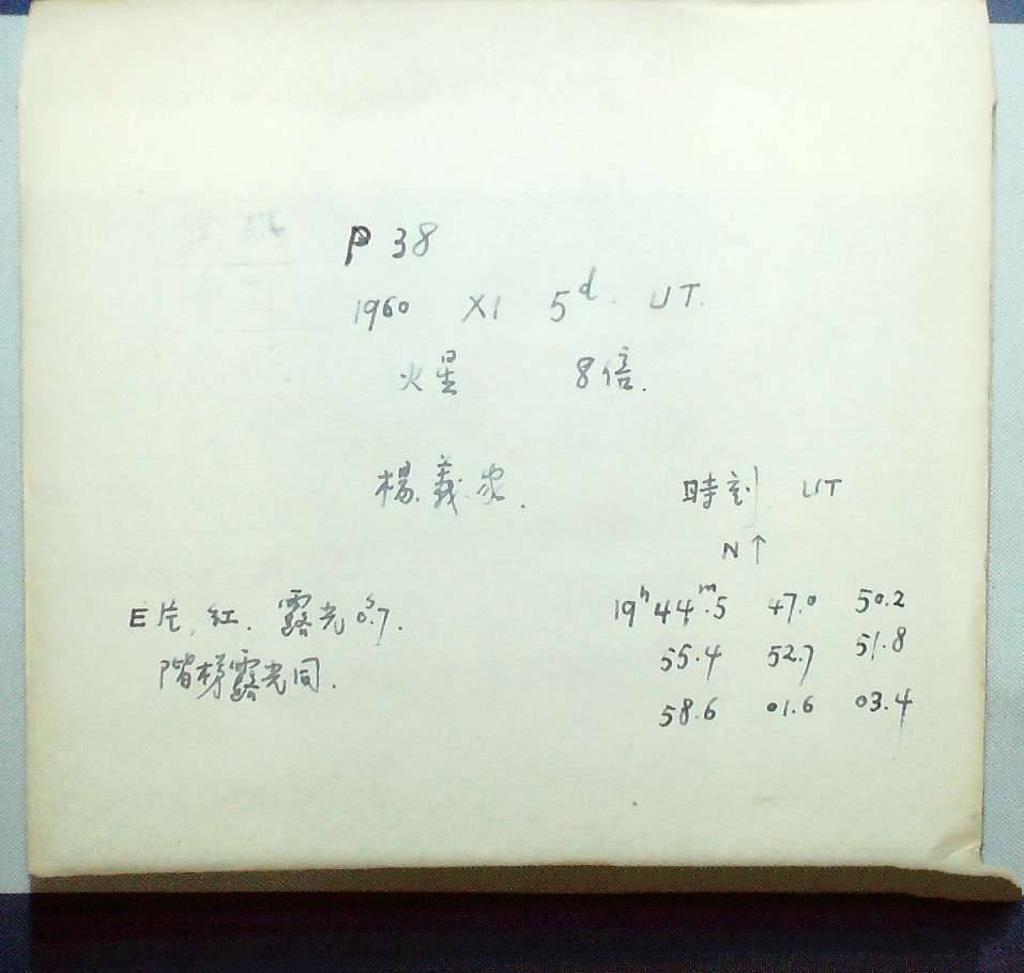 P 38
1960 XI 5d. UT.
火星 8倍.
楊義家.
時刻 UT
N↑
E片, 紅. 露光 0s.7.
階梯露光同.
19h 44m.5 47.0 50.2
55.4 52.7 51.8
58.6 01.6 03.4